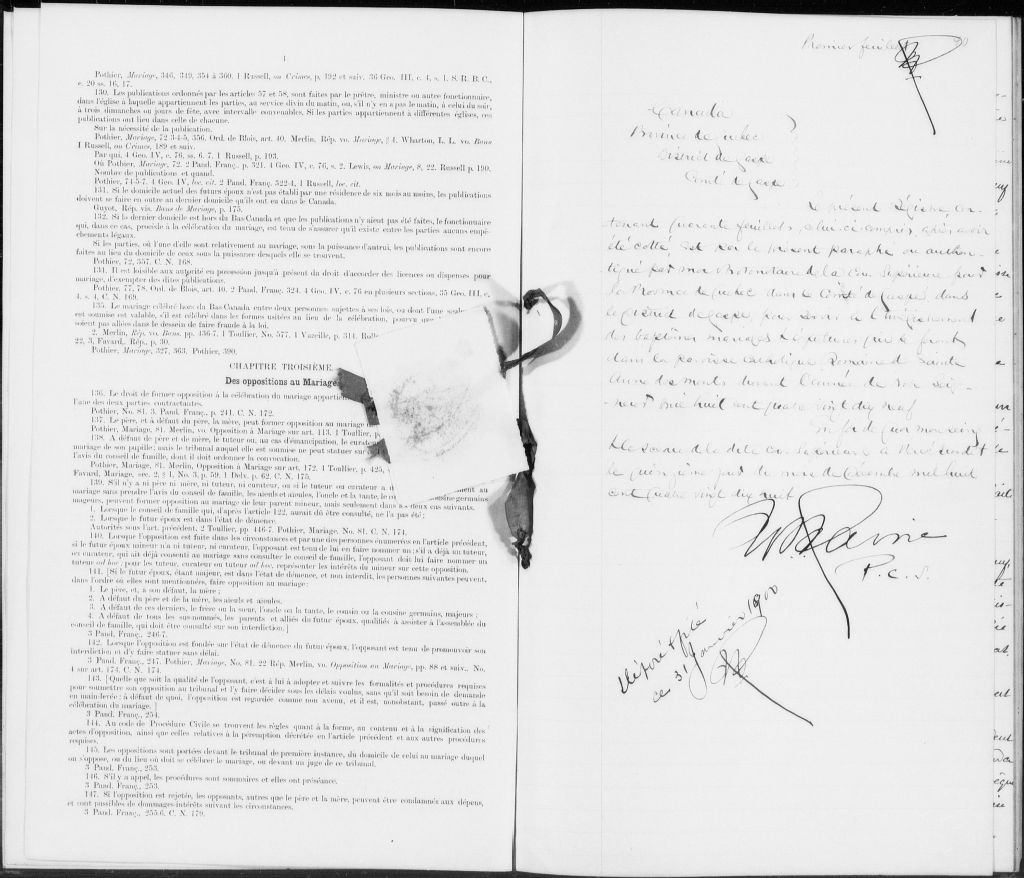 1
Pothier, Mariage, 346, 349, 354 à 360. 1 Russell, on Crimes, p. 192 et suiv. 36 Geo. III, c. 4, s. 1. S. R. B. C.,
c. 20 ss. 16, 17.
130. Les publications ordonnées par les articles 57 et 58, sont faites par le prêtre, ministre ou autre fonctionnaire,
dans l'église à laquelle appartiennent les parties, au service divin du matin, ou, s'il n'y en a pas le matin, à celui du soir,
à trois dimanches ou jours de fête, avec intervalle convenables. Si les parties appartiennent à différentes églises, ces
publications ont lieu dans celle de chacune.
Sur la nécessité de la publication.
Pothier, Mariage, 72 3-4-5, 356, Ord. de Blois, art. 40. Merlin, Rép. vo. Mariage, § 4. Wharton, L. L. vo. Bans
1 Russell, on Crimes, 189 et suiv.
Par qui, 4 Geo. IV, c. 76, ss. 6, 7. 1 Russell, p. 193.
Où Pothier, Mariage, 72. 2 Pand. Franç., p. 321. 4 Geo. IV, c. 76, s. 2. Lewis, on Mariage, 8, 22. Russell p. 190.
Nombre de publications et quand.
Pothier, 74-5-7. 4 Geo. IV, loc. cit. 2 Pand. Franç. 322-4, 1 Russell, loc. cit.
131. Si le domicile actuel des futurs époux n'est pas établi par une résidence de six mois au moins, les publications
doivent se faire en outre au dernier domicile qu'ils ont eu dans le Canada.
Guyot, Rép. vis. Bans de Mariage, p. 175.
132. Si le dernier domicile est hors du Bas-Canada et que les publications n'y aient pas été faites, le fonctionnaire
qui, dans ce cas, procède à la célébration du mariage, est tenu de s'assurer qu'il existe entre les parties aucuns empê-
chements légaux.
Si les parties, où l'une d'elle sont relativement au mariage, sous la puissance d'autrui, les publications sont encore
faites au lieu du domicile de ceux sous la puissance desquels elle se trouvent.
Pothier, 72, 357. C. N. 168.
134. Il est loisible aux autorité en possession jusqu'à présent du droit d'accorder des licences ou dispenses pour
mariage, d'exempter des dites publications.
Pothier, 77, 78. Ord. de Blois, art. 40, 2 Pand. Franç. 324. 4 Geo. IV, c. 76 en plusieurs sections, 35 Geo. III, c.
4, s. 4, C. N. 169.
135. Le mariage célébré hors du Bas-Canada entre deux personnes sujettes à ses lois, ou dont l'une seule
est soumise est valable, s'il est célébré dans les formes usitées au lieu de la célébration, pourvu que
soient pas allées dans le dessein de faire fraude à la loi.
2. Merlin, Rép. vo. Bans. pp. 436-7. 1 Toullier, No. 577. 1 Vazeille, p. 314. Roll
22, 3, Favard, Rép., p. 30.
Pothier, Mariage, 327, 363. Pothier, 390.
CHAPITRE TROISIÈME.
Des oppositions au Mariage.
136. Le droit de former opposition à la célébration du mariage appartient
l'une des deux parties contractantes.
Pothier, No. 81. 3. Pand. Franç., p. 241. C. N. 172.
137. Le père, et à défaut du père, la mère, peut former opposition au mariage
Pothier, Mariage, 81. Merlin, vo. Opposition à Mariage sur art. 113. 1 Toullier, p.
138. A défaut de père et de mère, le tuteur ou, au cas d'émancipation, le curateur
mariage de son pupille; mais le tribunal auquel elle est soumise ne peut statuer sur
l'avis du conseil de famille, dont il doit ordonner la convocation.
Pothier, Mariage, 81. Merlin, vo. Opposition à Mariage sur art. 172. 1 Toullier, p. 425,
Favard, Mariage, sec. 2, § 1, No. 3, p. 59. 1 Delv. p. 62. C. N. 175.
139. S'il n'y a ni père ni mère, ni tuteur, ni curateur, ou si le tuteur ou curateur a
mariage sans prendre l'avis du conseil de famille, les aïeuls et aïeules, l'oncle et la tante, le cousin germains
majeurs, peuvent former opposition au mariage de leur parent mineur, mais seulement dans les deux cas suivants.
1. Lorsque le conseil de famille qui, d'après l'article 122, aurait dû être consulté, ne l'a pas été;
2. Lorsque le futur époux est dans l'état de démence.
Autorités sous l'art. précédent. 2 Toullier, pp 446-7. Pothier, Mariage, No. 81. C. N. 174.
140. Lorsque l'opposition est faite dans les circonstances et par une des personnes énumérées en l'article précédent,
si le futur époux mineur n'a ni tuteur, ni curateur, l'opposant est tenu de lui en faire nommer un; s'il a déjà un tuteur,
ou curateur, qui ait déjà consenti au mariage sans consulter le conseil de famille, l'opposant doit lui faire nommer un
tuteur ad hoc; pour les tuteur, curateur ou tuteur ad hoc, représenter les intérêts du mineur sur cette opposition.
141. [Si le futur époux, étant majeur, est dans l'état de démence, et non interdit, les personnes suivantes peuvent,
dans l'ordre où elles sont mentionnées, faire opposition au mariage:
1. Le père, et, à son défaut, la mère;
2. A défaut du père et de la mère, les aïeuls et aïeules.
3. A défaut de ces derniers, le frère ou la sœur, l'oncle ou la tante, le cousin ou la cousine germains, majeurs;
4. A défaut de tous les sus-nommés, les parents et alliés du futur époux, qualifiés à assister à l'assemblée du
conseil de famille, qui doit être consulté sur son interdiction.]
3 Pand. Franç., 246-7.
142. Lorsque l'opposition est fondée sur l'état de démence du futur époux, l'opposant est tenu de promouvoir son
interdiction et d'y faire statuer sans délai.
3 Pand. Franç., 247. Pothier, Mariage, No. 81. 22 Rép. Merlin, vo. Opposition au Mariage, pp. 88 et suiv., No.
4 sur art. 174. C. N. 174.
143. [Quelle que soit la qualité de l'opposant, c'est à lui à adopter et suivre les formalités et procédures requises
pour soumettre son opposition au tribunal et l'y faire décider sous les délais voulus, sans qu'il soit besoin de demande
en main-levée; à défaut de quoi, l'opposition est regardée comme non avenu, et il est, nonobstant, passé outre à la
célébration du mariage.]
3 Pand. Franç., 254.
144. Au code de Procédure Civile se trouvent les règles quant à la forme, au contenu et à la signification des
actes d'opposition, ainsi que celles relatives à la péremption décrétée en l'article précédent et aux autres procédures
requises.
145. Les oppositions sont portées devant le tribunal de première instance, du domicile de celui au mariage duquel
on s'oppose, ou du lieu où doit se célébrer le mariage, ou devant un juge de ce tribunal.
3 Pand. Franç., 253.
146. S'il y a appel, les procédures sont sommaires et elles ont préséance.
3 Pand. Franç., 253.
147. Si l'opposition est rejetée, les opposants, autres que le père et la mère, peuvent être condamnés aux dépens,
et sont passibles de dommages-intérêts suivant les circonstances.
3 Pand. Franç., 255-6. C. N. 179.
Premier feuillet
Canada
Province de Québec
District de Gaspé
Comté de Gaspé
Le présent Régistre, con-
tenant quarante feuillets, celui-ci compris, après avoir
été cotté, est par le présent paraphé ou authen-
tiqué par moi Protonotaire de la Cour Supérieure pour
la Province de Québec dans le Comté de Gaspé dans
le District de Gaspé, pour servir à l'enregistrement
des baptêmes mariages & sépultures qui se feront
dans la paroisse catholique Romaine de Sainte
Anne des Monts durant l'année de Notre Seig-
neur mil huit cent quatre vingt dix neuf
En foi de quoi mon seing
& le sceau de la dite Cour Supérieure à Percé sont
le quinzième jour du mois de Décembre mil huit
cent quatre vingt dix huit
P. C. S.
Déposé & prté
ce 31 Janvier 1900